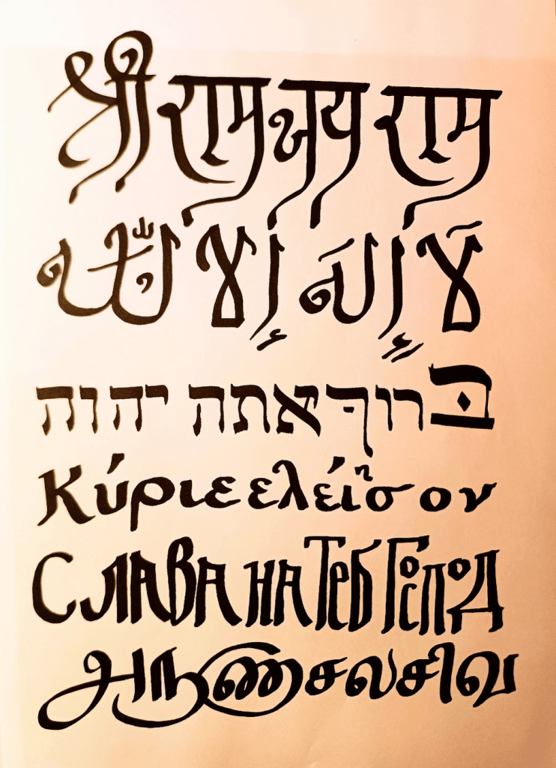 श्री राम जय राम
لَا إِلٰهَ إِلَّا اللّٰه
בּרוך אתה יהוה
Κύριε ελέησον
Слава на Теб Господ
அருணாசலசிவ